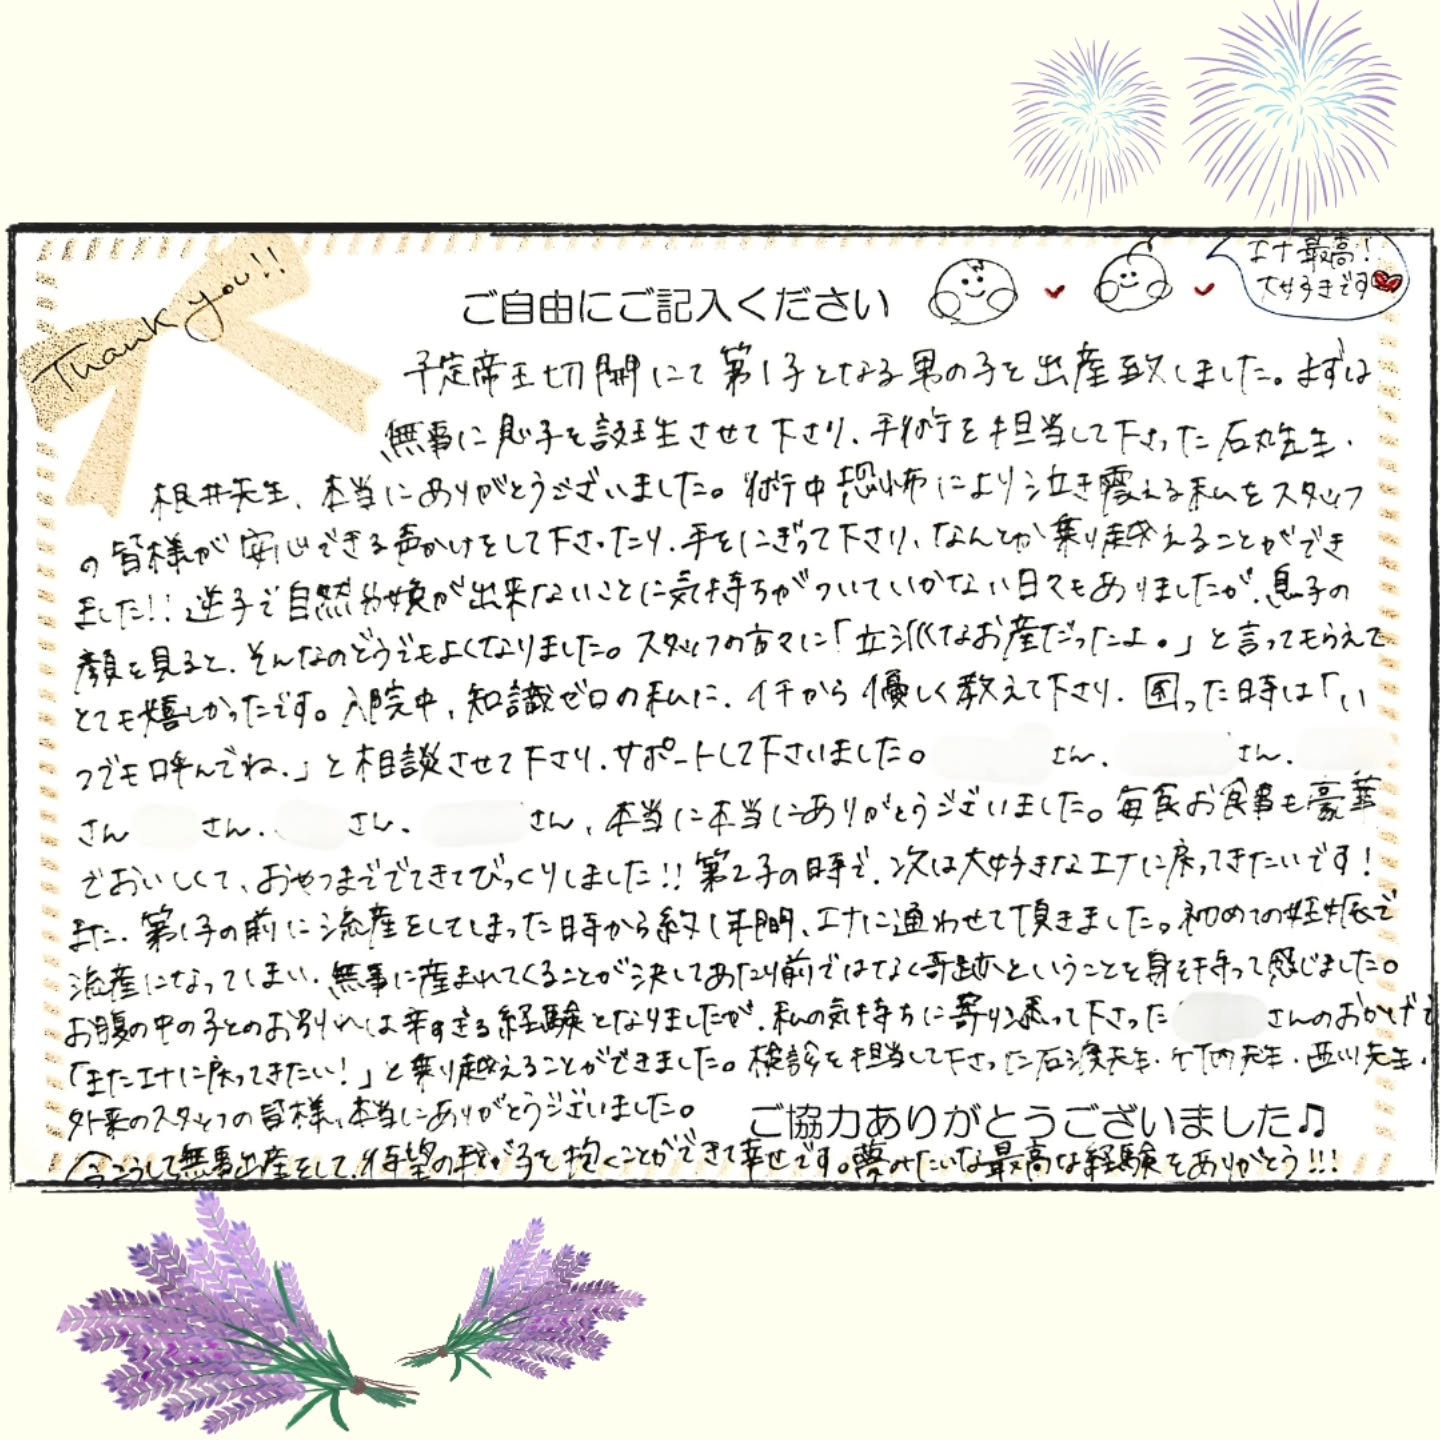 Thank you!!
エナ最高!
大好きです
ご自由にご記入ください
予定帝王切開にて第1子となる男の子を出産致しました。まずは
無事に息子を誕生させて下さり、手術を担当して下さった石丸先生、
根井先生、本当にありがとうございました。術中恐怖により泣き震える私をスタッフ
の皆様が安心できる声かけをして下さったり、手をにぎって下さり、なんとか乗り越えることができ
ました!!逆子で自然分娩が出来ないことに気持ちがついていかない日々もありましたが、息子の
顔を見ると、そんなのどうでもよくなりました。スタッフの方々に「立派なお産だったよ。」と言ってもらえて
とても嬉しかったです。入院中、知識ゼロの私に、イチから優しく教えて下さり、困った時は「い
つでも呼んでね。」と相談させて下さり、サポートして下さいました。 さん、 さん、
さん さん、 さん、 さん、本当に本当にありがとうございました。毎食お食事も豪華
でおいしくて、おやつまででてきてびっくりしました!!第2子の時で、次は大好きなエナに戻ってきたいです!
また、第1子の前に流産をしてしまった時から約1年間、エナに通わせて頂きました。初めての妊娠で
流産になってしまい、無事に産まれてくることが決してあたり前ではなく奇跡ということを身を持って感じました。
お腹の中の子とのお別れは辛すぎる経験となりましたが、私の気持ちに寄り添って下さった さんのおかげで
「またエナに戻ってきたい!」と乗り越えることができました。検診を担当して下さった石渡先生、竹内先生、西川先生、
外来のスタッフの皆様、本当にありがとうございました。
ご協力ありがとうございました♫
今こうして無事出産をして、待望の我が子を抱くことができて幸せです。夢みたいな最高な経験をありがとう!!!